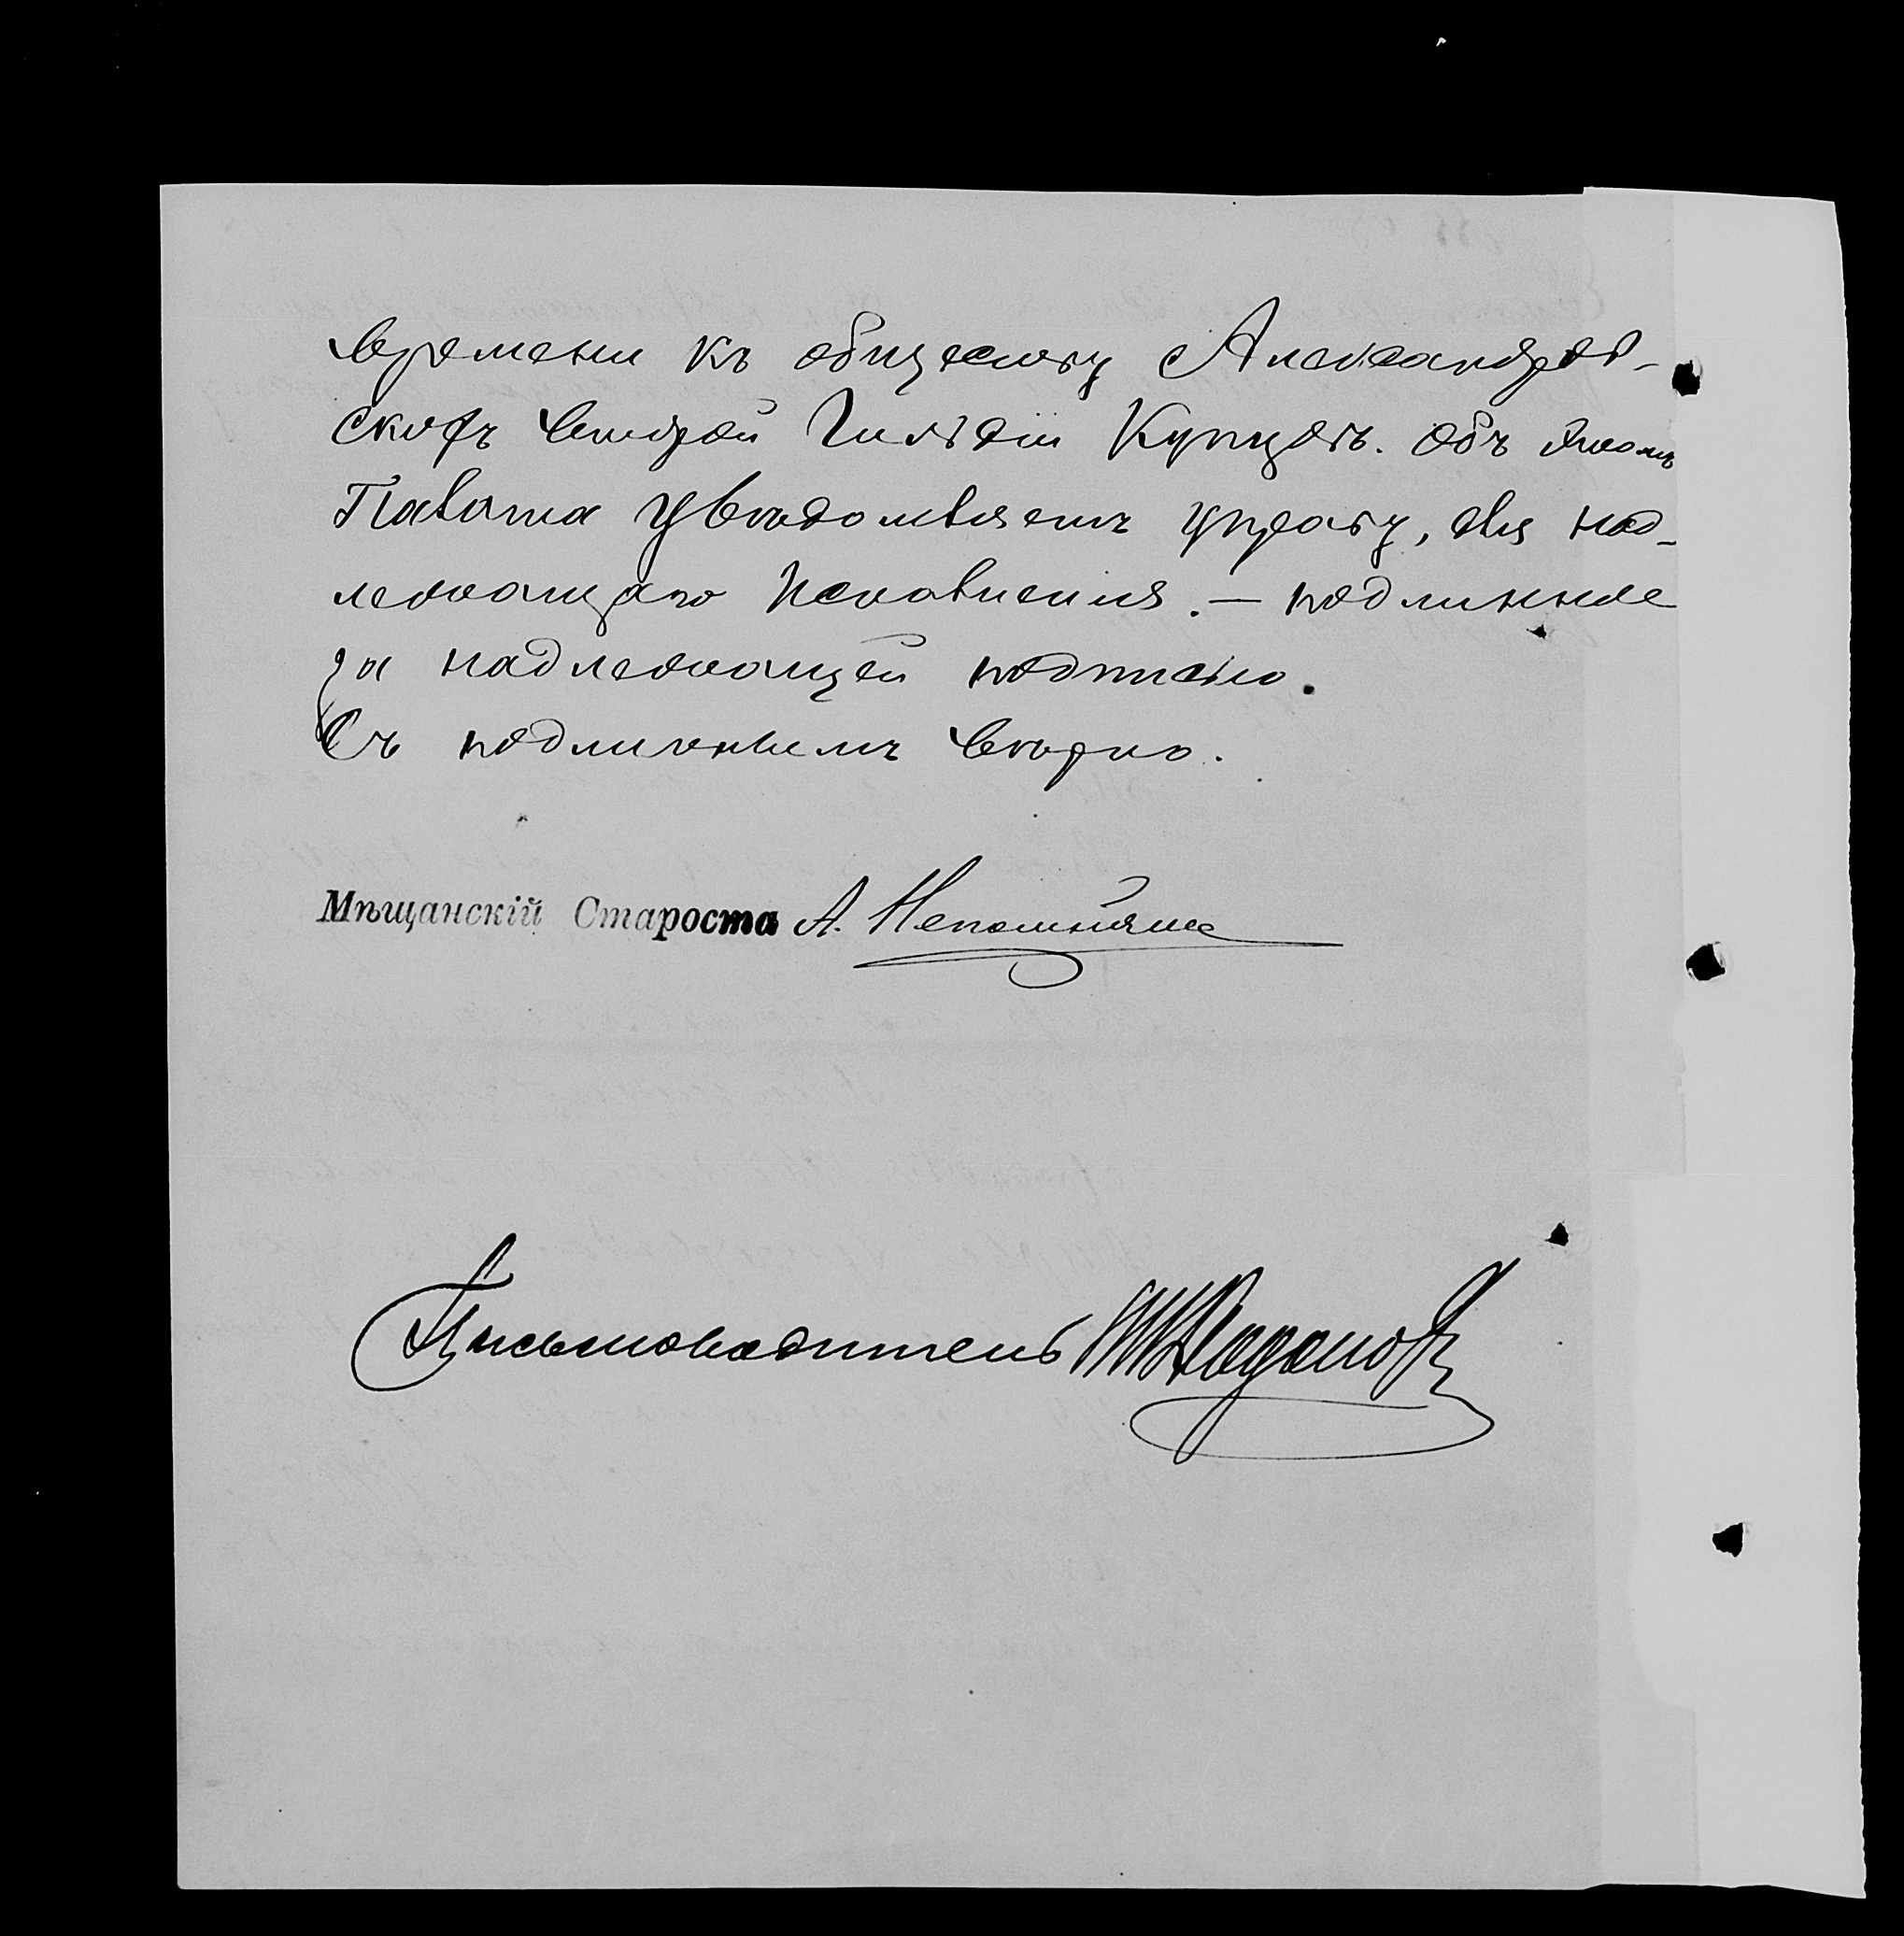 времени къ обществу Александров-
скихъ второй Гильдіи Купцовъ. Объ этомъ
Палата увѣдомляетъ управу, для над-
лежащаго исполненія. — подлинное
за надлежащей подписью.
Съ подлиннымъ вѣрно.
Мѣщанскій Староста А. Непомнящій
Письмоводитель